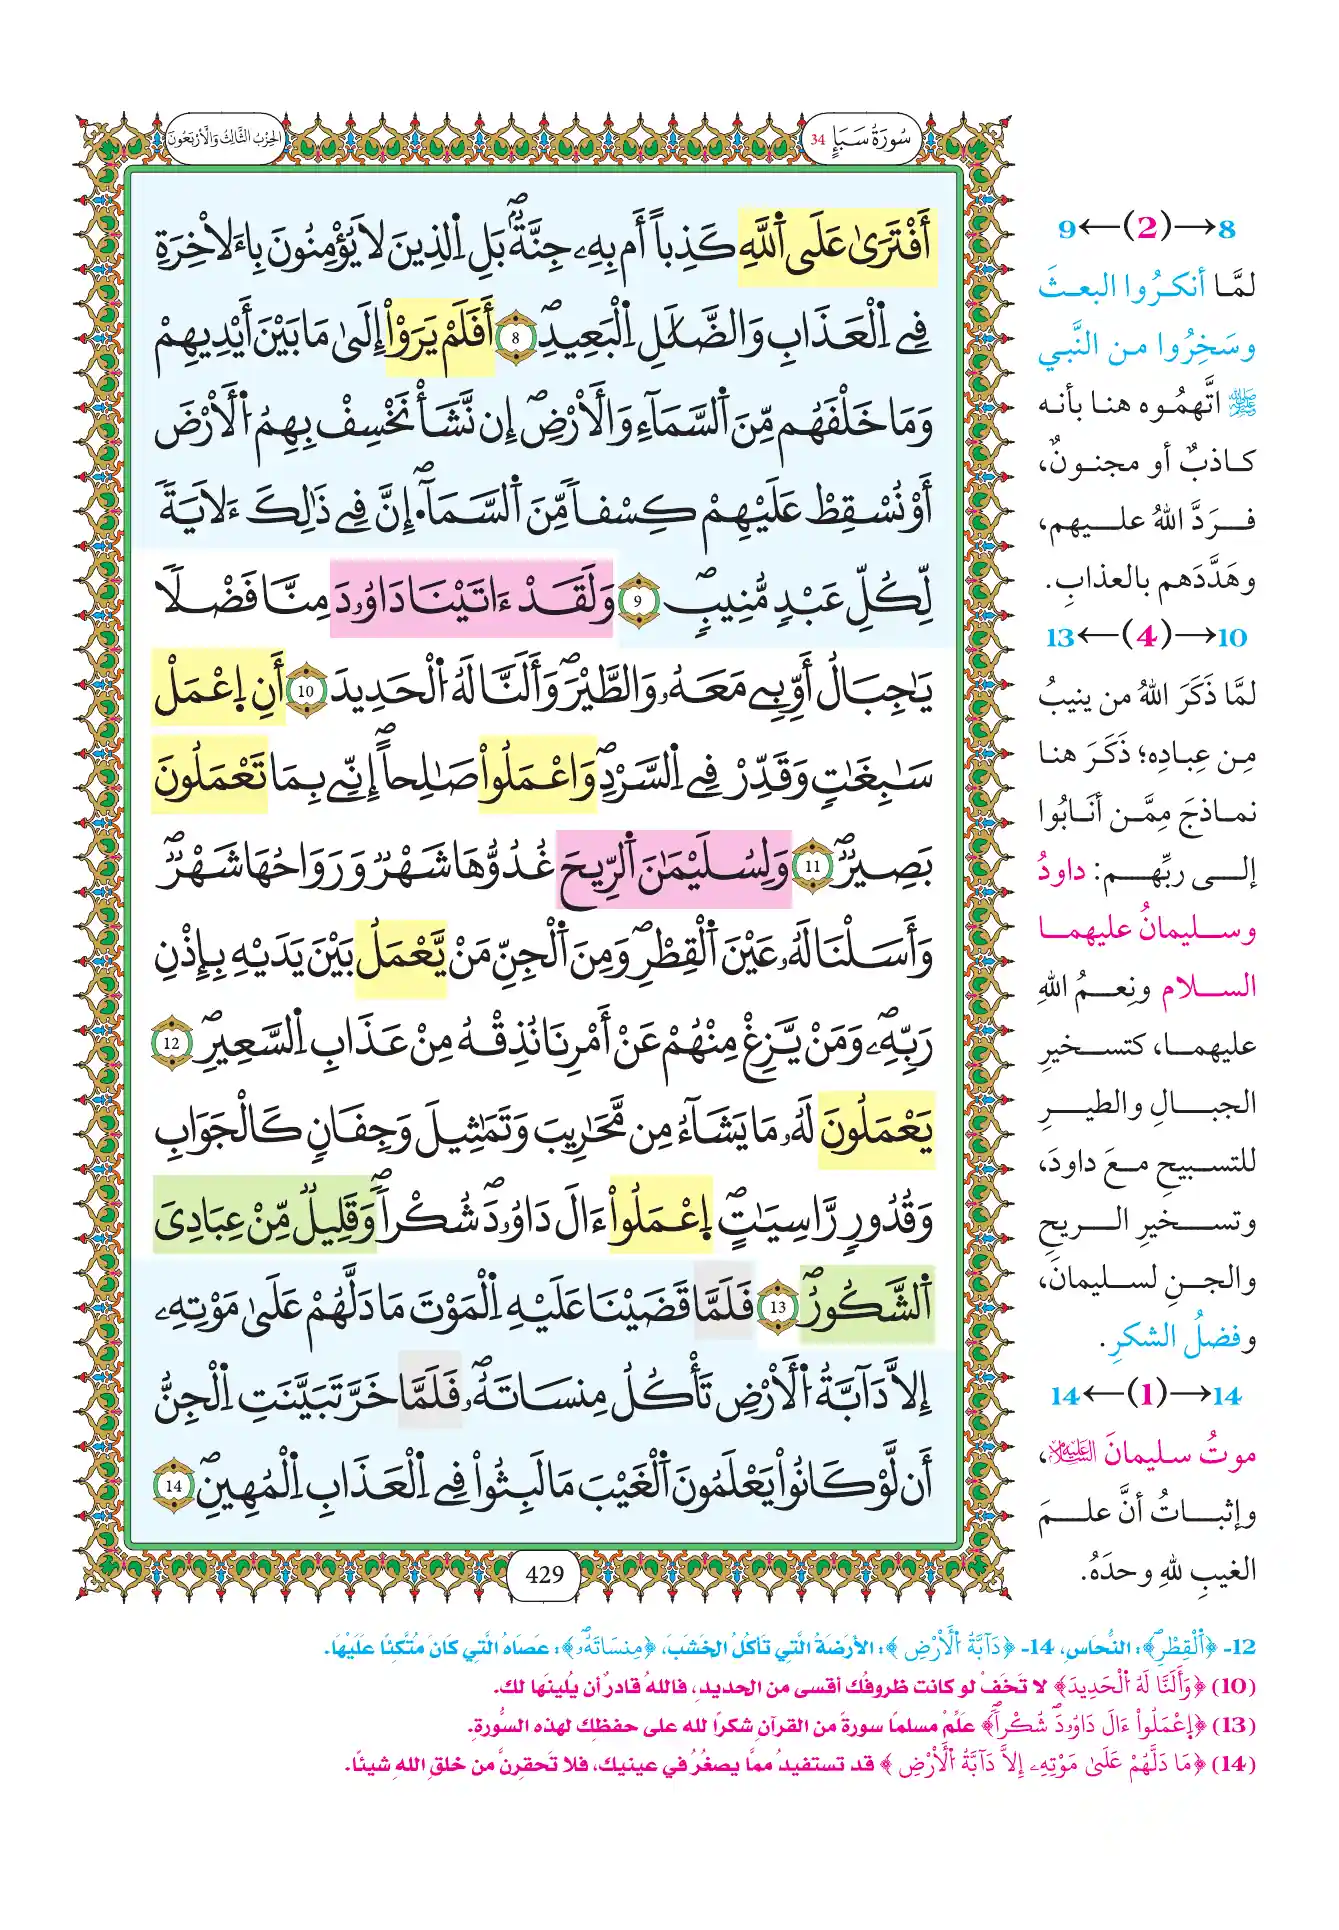 سُورَةُ سَبَإٍ 34
الحِزْبُ الثَّالِثُ وَالْأَرْبَعُونَ
أَفْتَرَىٰ عَلَى اَ۬للَّهِ كَذِباً أَم بِهِۦ جِنَّةُۢۖ بَلِ اِ۬لذِينَ لَا يُؤْمِنُونَ بِاءَلَاخِرَةِ
فِے اِ۬لْعَذَابِ وَالضَّلَٰلِ اِ۬لْبَعِيدِۖ 8 أَفَلَمْ يَرَوْاْ إِلَىٰ مَا بَيْنَ أَيْدِيهِمْ
وَمَا خَلْفَهُم مِّنَ اَ۬لسَّمَآءِ وَالْأَرْضِۖ إِن نَّشَأْ نَخْسِفْ بِهِمُ اُ۬لْأَرْضَ
أَوْ نُسْقِطْ عَلَيْهِمْ كِسْفاً مِّنَ اَ۬لسَّمَآءِۖ اِنَّ فِے ذَٰلِكَ ءَلَايَةٗ
لِّكُلِّ عَبْدٖ مُّنِيبٖۖ 9 وَلَقَدْ ءَاتَيْنَا دَاوُۥدَ مِنَّا فَضْلاٗ
يَٰجِبَالُ أَوِّبِے مَعَهُۥ وَالطَّيْرَۖ وَأَلَنَّا لَهُ اُ۬لْحَدِيدَ 10 أَنِ اِ۪عْمَلْ
سَٰبِغَٰتٖ وَقَدِّرْ فِے اِ۬لسَّرْدِۖ وَاعْمَلُواْ صَٰلِحاًۖ إِنِّے بِمَا تَعْمَلُونَ
بَصِيرٞۖ 11 وَلِسُلَيْمَٰنَ اَ۬لرِّيحَ غُدُوُّهَا شَهْرٞ وَرَوَاحُهَا شَهْرٞۖ
وَأَسَلْنَا لَهُۥ عَيْنَ اَ۬لْقِطْرِۖ وَمِنَ اَ۬لْجِنِّ مَنْ يَّعْمَلُ بَيْنَ يَدَيْهِ بِإِذْنِ
رَبِّهِۦۖ وَمَنْ يَّزِغْ مِنْهُمْ عَنْ أَمْرِنَا نُذِقْهُ مِنْ عَذَابِ اِ۬لسَّعِيرِۖ 12
يَعْمَلُونَ لَهُۥ مَا يَشَآءُ مِن مَّحَٰرِيبَ وَتَمَٰثِيلَ وَجِفَانٖ كَالْجَوَابِ
وَقُدُورٖ رَّاسِيَٰتٍۖ اِ۪عْمَلُواْ ءَالَ دَاوُۥدَۖ شُكْراٗۖ وَقَلِيلٞ مِّنْ عِبَادِيَ
اَ۬لشَّكُورُۖ 13 فَلَمَّا قَضَيْنَا عَلَيْهِ اِ۬لْمَوْتَ مَا دَلَّهُمْ عَلَىٰ مَوْتِهِۦ
إِلَّا دَآبَّةُ اُ۬لْأَرْضِ تَأْكُلُ مِنسَاتَهُۥۖ فَلَمَّا خَرَّ تَبَيَّنَتِ اِ۬لْجِنُّ
أَن لَّوْ كَانُواْ يَعْلَمُونَ اَ۬لْغَيْبَ مَا لَبِثُواْ فِے اِ۬لْعَذَابِ اِ۬لْمُهِينِۖ 14
429
8→(2)←9
لمَّا أنكرُوا البعثَ
وسَخِرُوا من النَّبي
ﷺ اتَّهمُوه هنا بأنه
كاذبٌ أو مجنونٌ،
فردَّ اللهُ عليهم،
وهَدَّدَهم بالعذابِ.
10→(4)←13
لمَّا ذَكَرَ اللهُ من ينيبُ
مِن عِبادِه؛ ذَكَرَ هنا
نماذجَ مِمَّن أنَابُوا
إلى ربِّهم: داودُ
وسليمانُ عليهما
السلام ونِعمُ اللهِ
عليهما، كتسخيرِ
الجبالِ والطيرِ
للتسبيحِ معَ داودَ،
وتسخيرِ الريحِ
والجنِ لسليمانَ،
وفضلُ الشكرِ.
14→(1)←14
موتُ سليمانَ عليه السلام،
وإثباتُ أنَّ علمَ
الغيبِ للهِ وحدَهُ.
12- ﴿اَ۬لْقِطْرِۖ﴾: النُّحَاسِ، 14- ﴿دَآبَّةُ اُ۬لْأَرْضِ﴾: الأَرَضَةُ الَّتِي تَأْكُلُ الخَشَبَ، ﴿مِنسَاتَهُۥۖ﴾: عَصَاهُ الَّتِي كَانَ مُتَّكِئًا عَلَيْهَا.
(10) ﴿وَأَلَنَّا لَهُ اُ۬لْحَدِيدَ﴾ لا تَخَفْ لو كانت ظروفُك أقسى من الحديدِ، فاللهُ قادرٌ أن يُلينَها لك.
(13) ﴿اِ۪عْمَلُواْ ءَالَ دَاوُۥدَۖ شُكْراٗۖ﴾ علِّمْ مسلمًا سورةً من القرآنِ شكرًا لله على حفظِك لهذه السُّورةِ.
(14) ﴿مَا دَلَّهُمْ عَلَىٰ مَوْتِهِۦ إِلَّا دَآبَّةُ اُ۬لْأَرْضِ﴾ قد تستفيدُ ممَّا يصغُرُ في عينيك، فلا تَحقرنَّ من خلقِ اللهِ شيئًا.